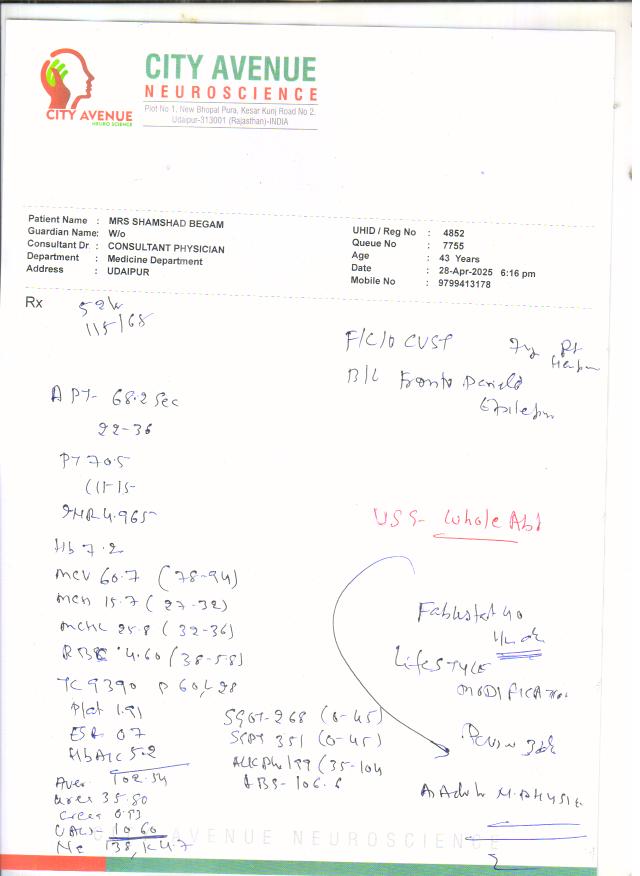 CITY AVENUE
NEURO SCIENCE
CITY AVENUE
NEUROSCIENCE
Plot No 1, New Bhopal Pura, Kesar Kunj Road No 2,
Udaipur-313001 (Rajasthan)-INDIA
Patient Name : MRS SHAMSHAD BEGAM
Guardian Name: W/o
Consultant Dr : CONSULTANT PHYSICIAN
Department : Medicine Department
Address : UDAIPUR
UHID / Reg No : 4852
Queue No : 7755
Age : 43 Years
Date : 28-Apr-2025 6:16 pm
Mobile No : 9799413178
Rx
115/68
F/C/O CVST
B/L Fronto
APT- 68.2 Sec
22-36
PT 70.5
(11-15
INR 4.965
Hb 7.2
MCV 60.7 (78-94)
MCH 15.7 (27-32)
MCHC 25.8 (32-36)
RBC 4.60 (3.8-5.8)
TC 9390 P 60, L 28
Plat 1.91
ESR 07
HbA1c 5.2
Aver 102.54
Urea 35.80
Creat 0.93
10.60
Na 138, K 4.7
SGOT-268 (0-45)
SGPT 351 (0-45)
ALKPh 199 (35-104
RBS-106.6
USG- Whole Abd
40
LIFESTYLE
MODIFICATION
Review
CITY AVENUE NEUROSCIENCE